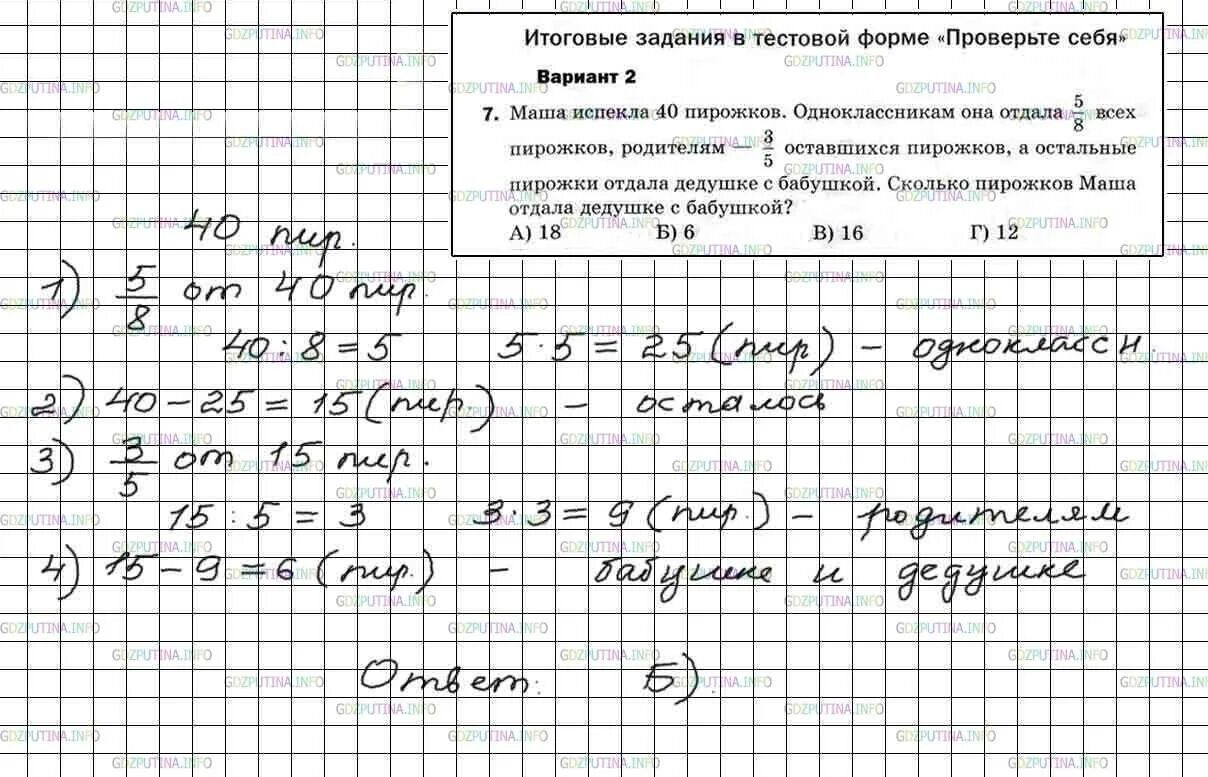 Итоговые задания в тестовой форме «Проверьте себя»
Вариант 2
7. Маша испекла 40 пирожков. Одноклассникам она отдала 5/8 всех
пирожков, родителям — 3/5 оставшихся пирожков, а остальные
пирожки отдала дедушке с бабушкой. Сколько пирожков Маша
отдала дедушке с бабушкой?
А) 18 Б) 6 В) 16 Г) 12
40 пир.
1) 5/8 от 40 пир.
40 : 8 = 5 5 · 5 = 25 (пир) – одноклассн.
2) 40 – 25 = 15 (пир.) – осталось
3) 3/5 от 15 пир.
15 : 5 = 3 3 · 3 = 9 (пир.) – родителям
4) 15 – 9 = 6 (пир.) – бабушке и дедушке
Ответ: Б).
GDZPUTINA.INFO